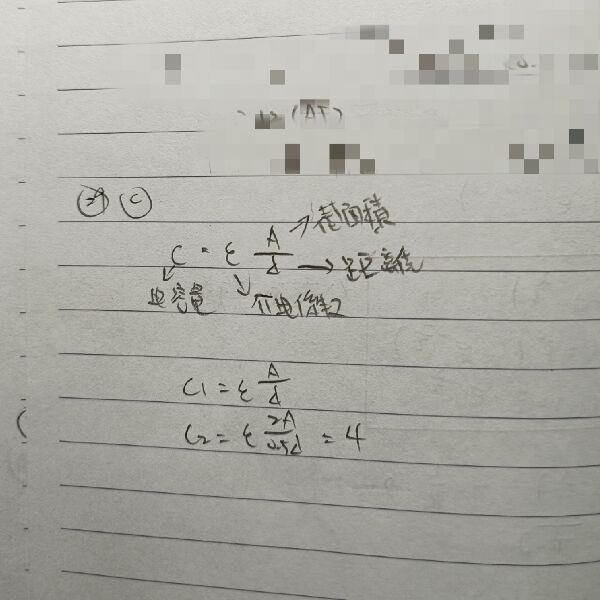 (AT)
29 C
C = ε A/d → 截面積
→ 距離
電容量 介電係數
C1 = ε A/d
C2 = ε 2A/0.5d = 4